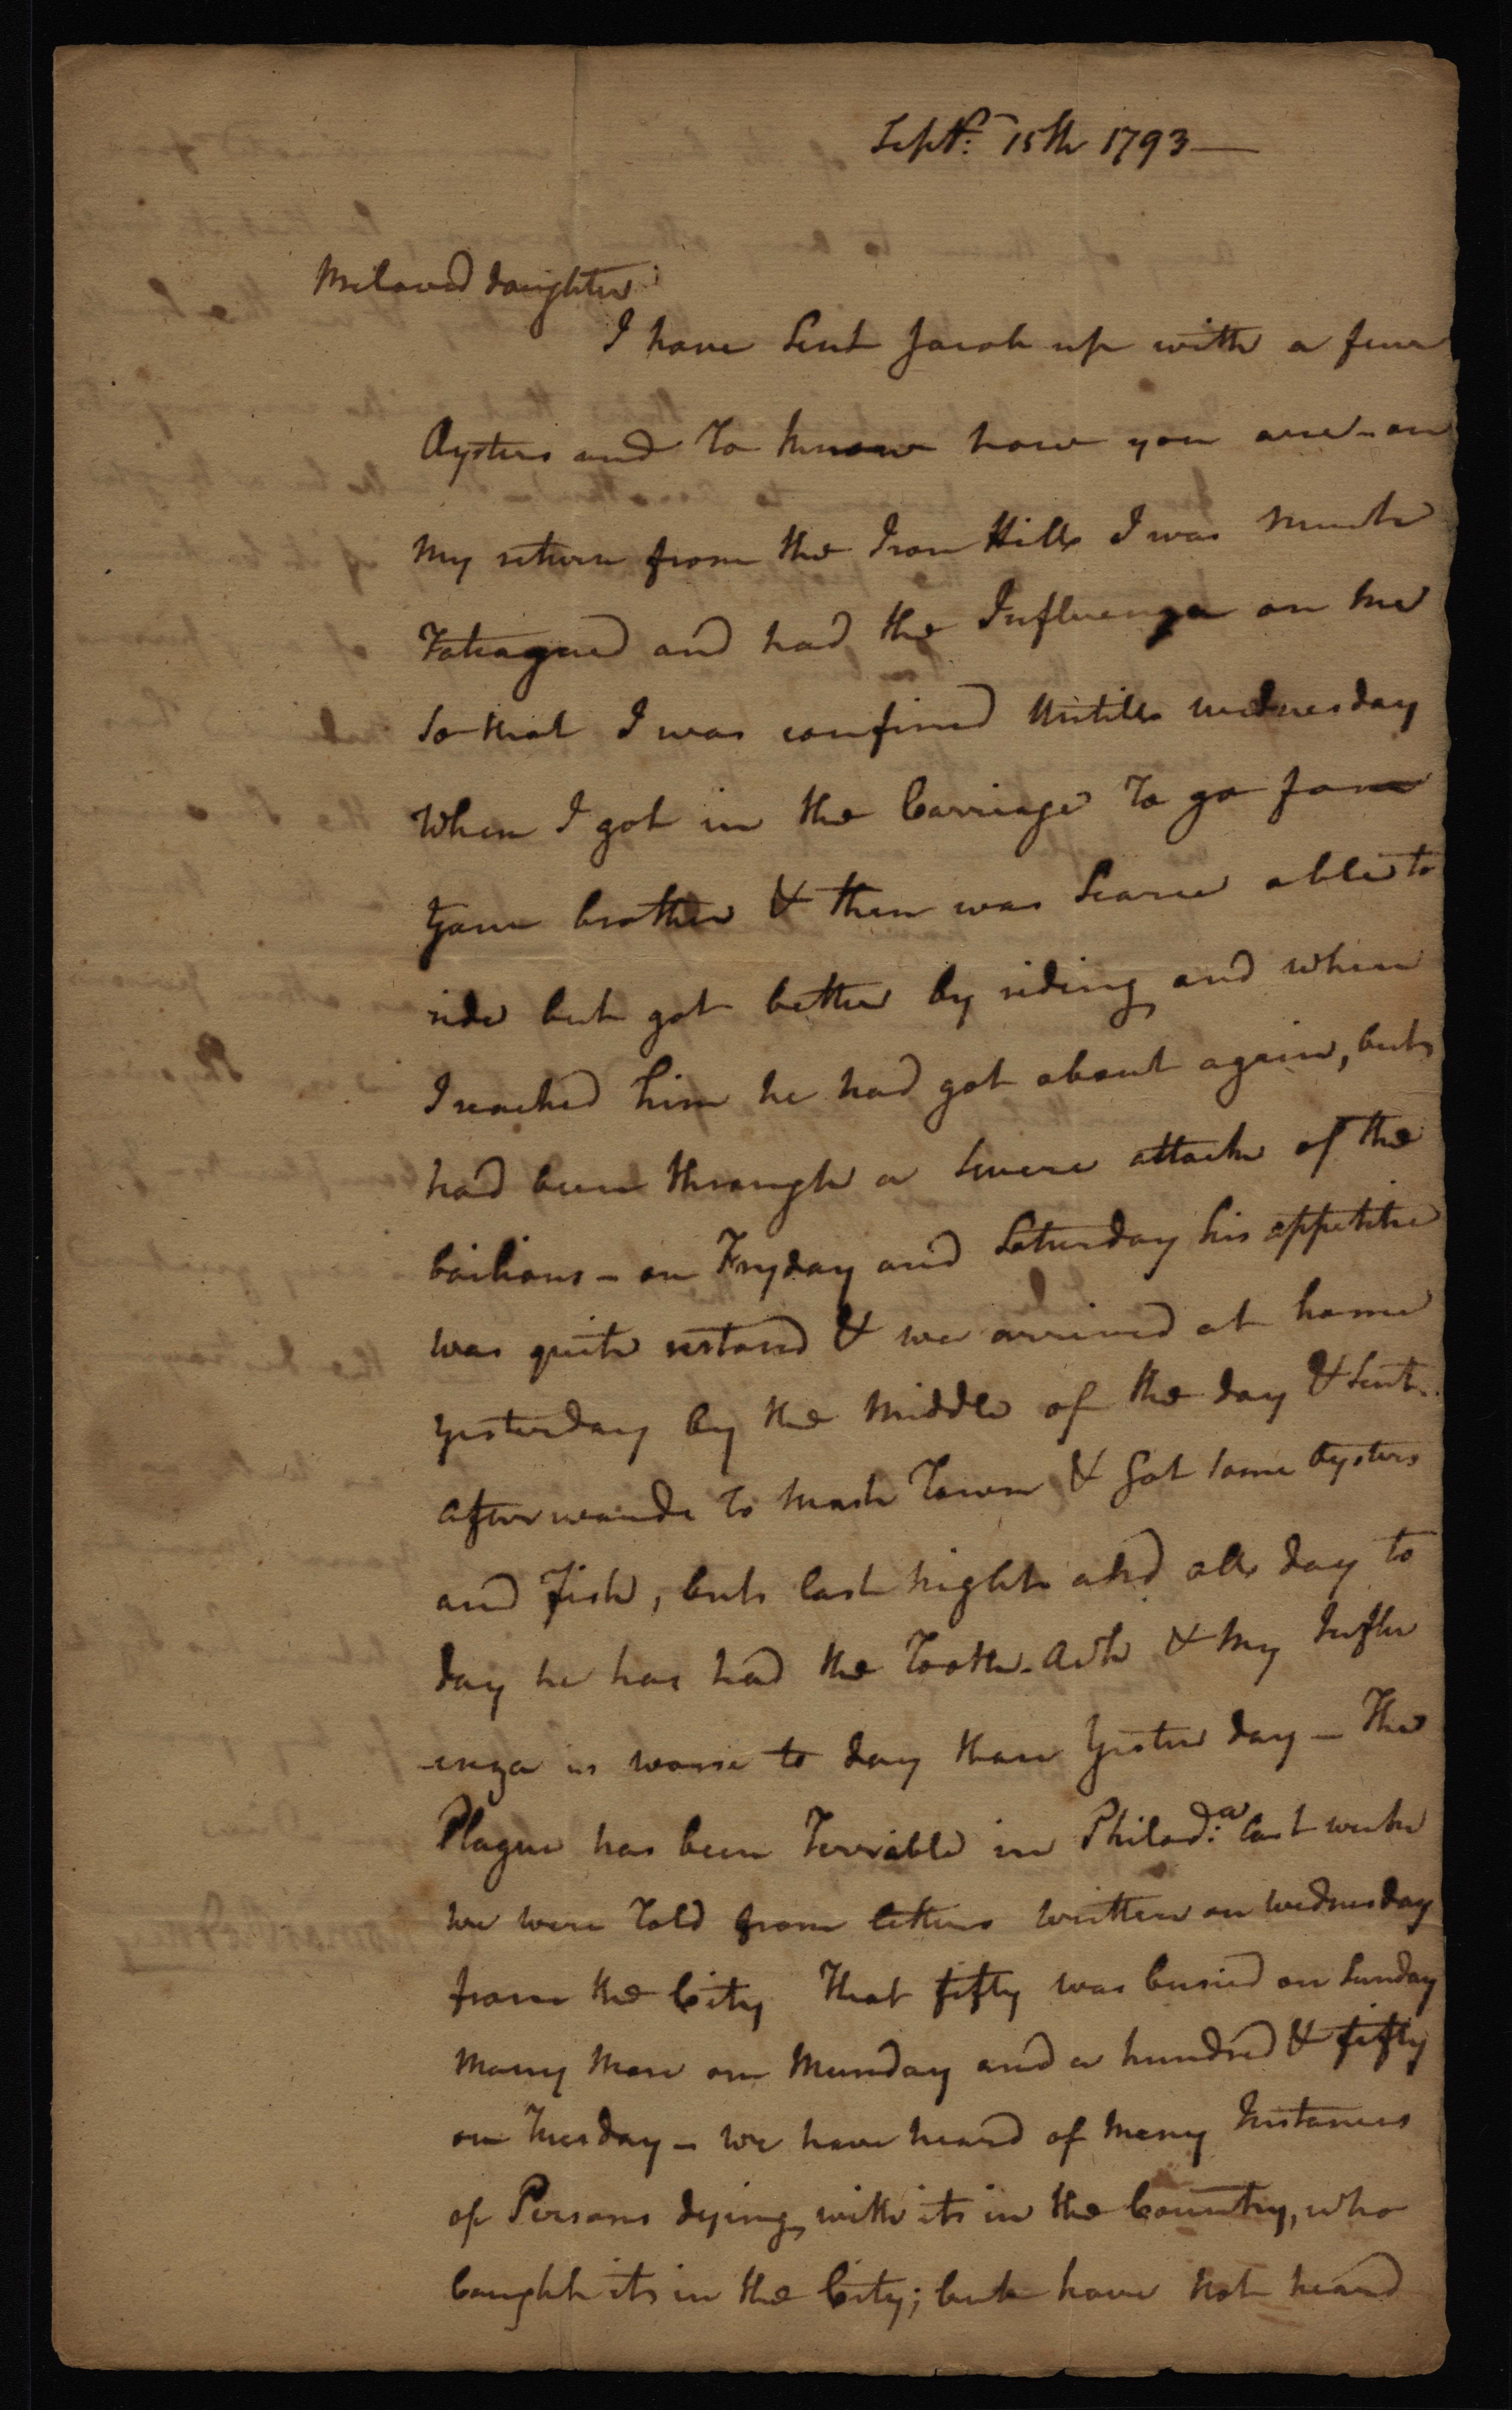 Sept.r 15th 1793—
Beloved daughter
I have Sent Jacob up with a few
Oysters and To know how you are - on
My return from the Iron Hills I was Much
Fateagued and had the Influenza on Me
So that I was confined Untill wednesday
When I got in the Carriage To go for
Your brother & then was Scarce able to
ride but got better by riding and when
I reached him he had got about again, but
had been through a Severe attack of the
boilious - on Fryday and Saturday his appetite
was quite restored & we arrived at home
yesterday by the Middle of the day & Sent
afterwards To Town & Got some Oysters
and Fish, but last night and all day to
day he has had the Tooth-Ach & My Influ
-enza is worse to day than Yester day — The
Plague has been Terrible in Philad:a last week
we were Told from letters written on wednesday
from the City That fifty was buried on Sunday
Many More on Munday and a hundred & fifty
on Tuesday - we have heard of Many Instances
of Persons dying with it in the Country, who
Caught it in the City; but have Not heard